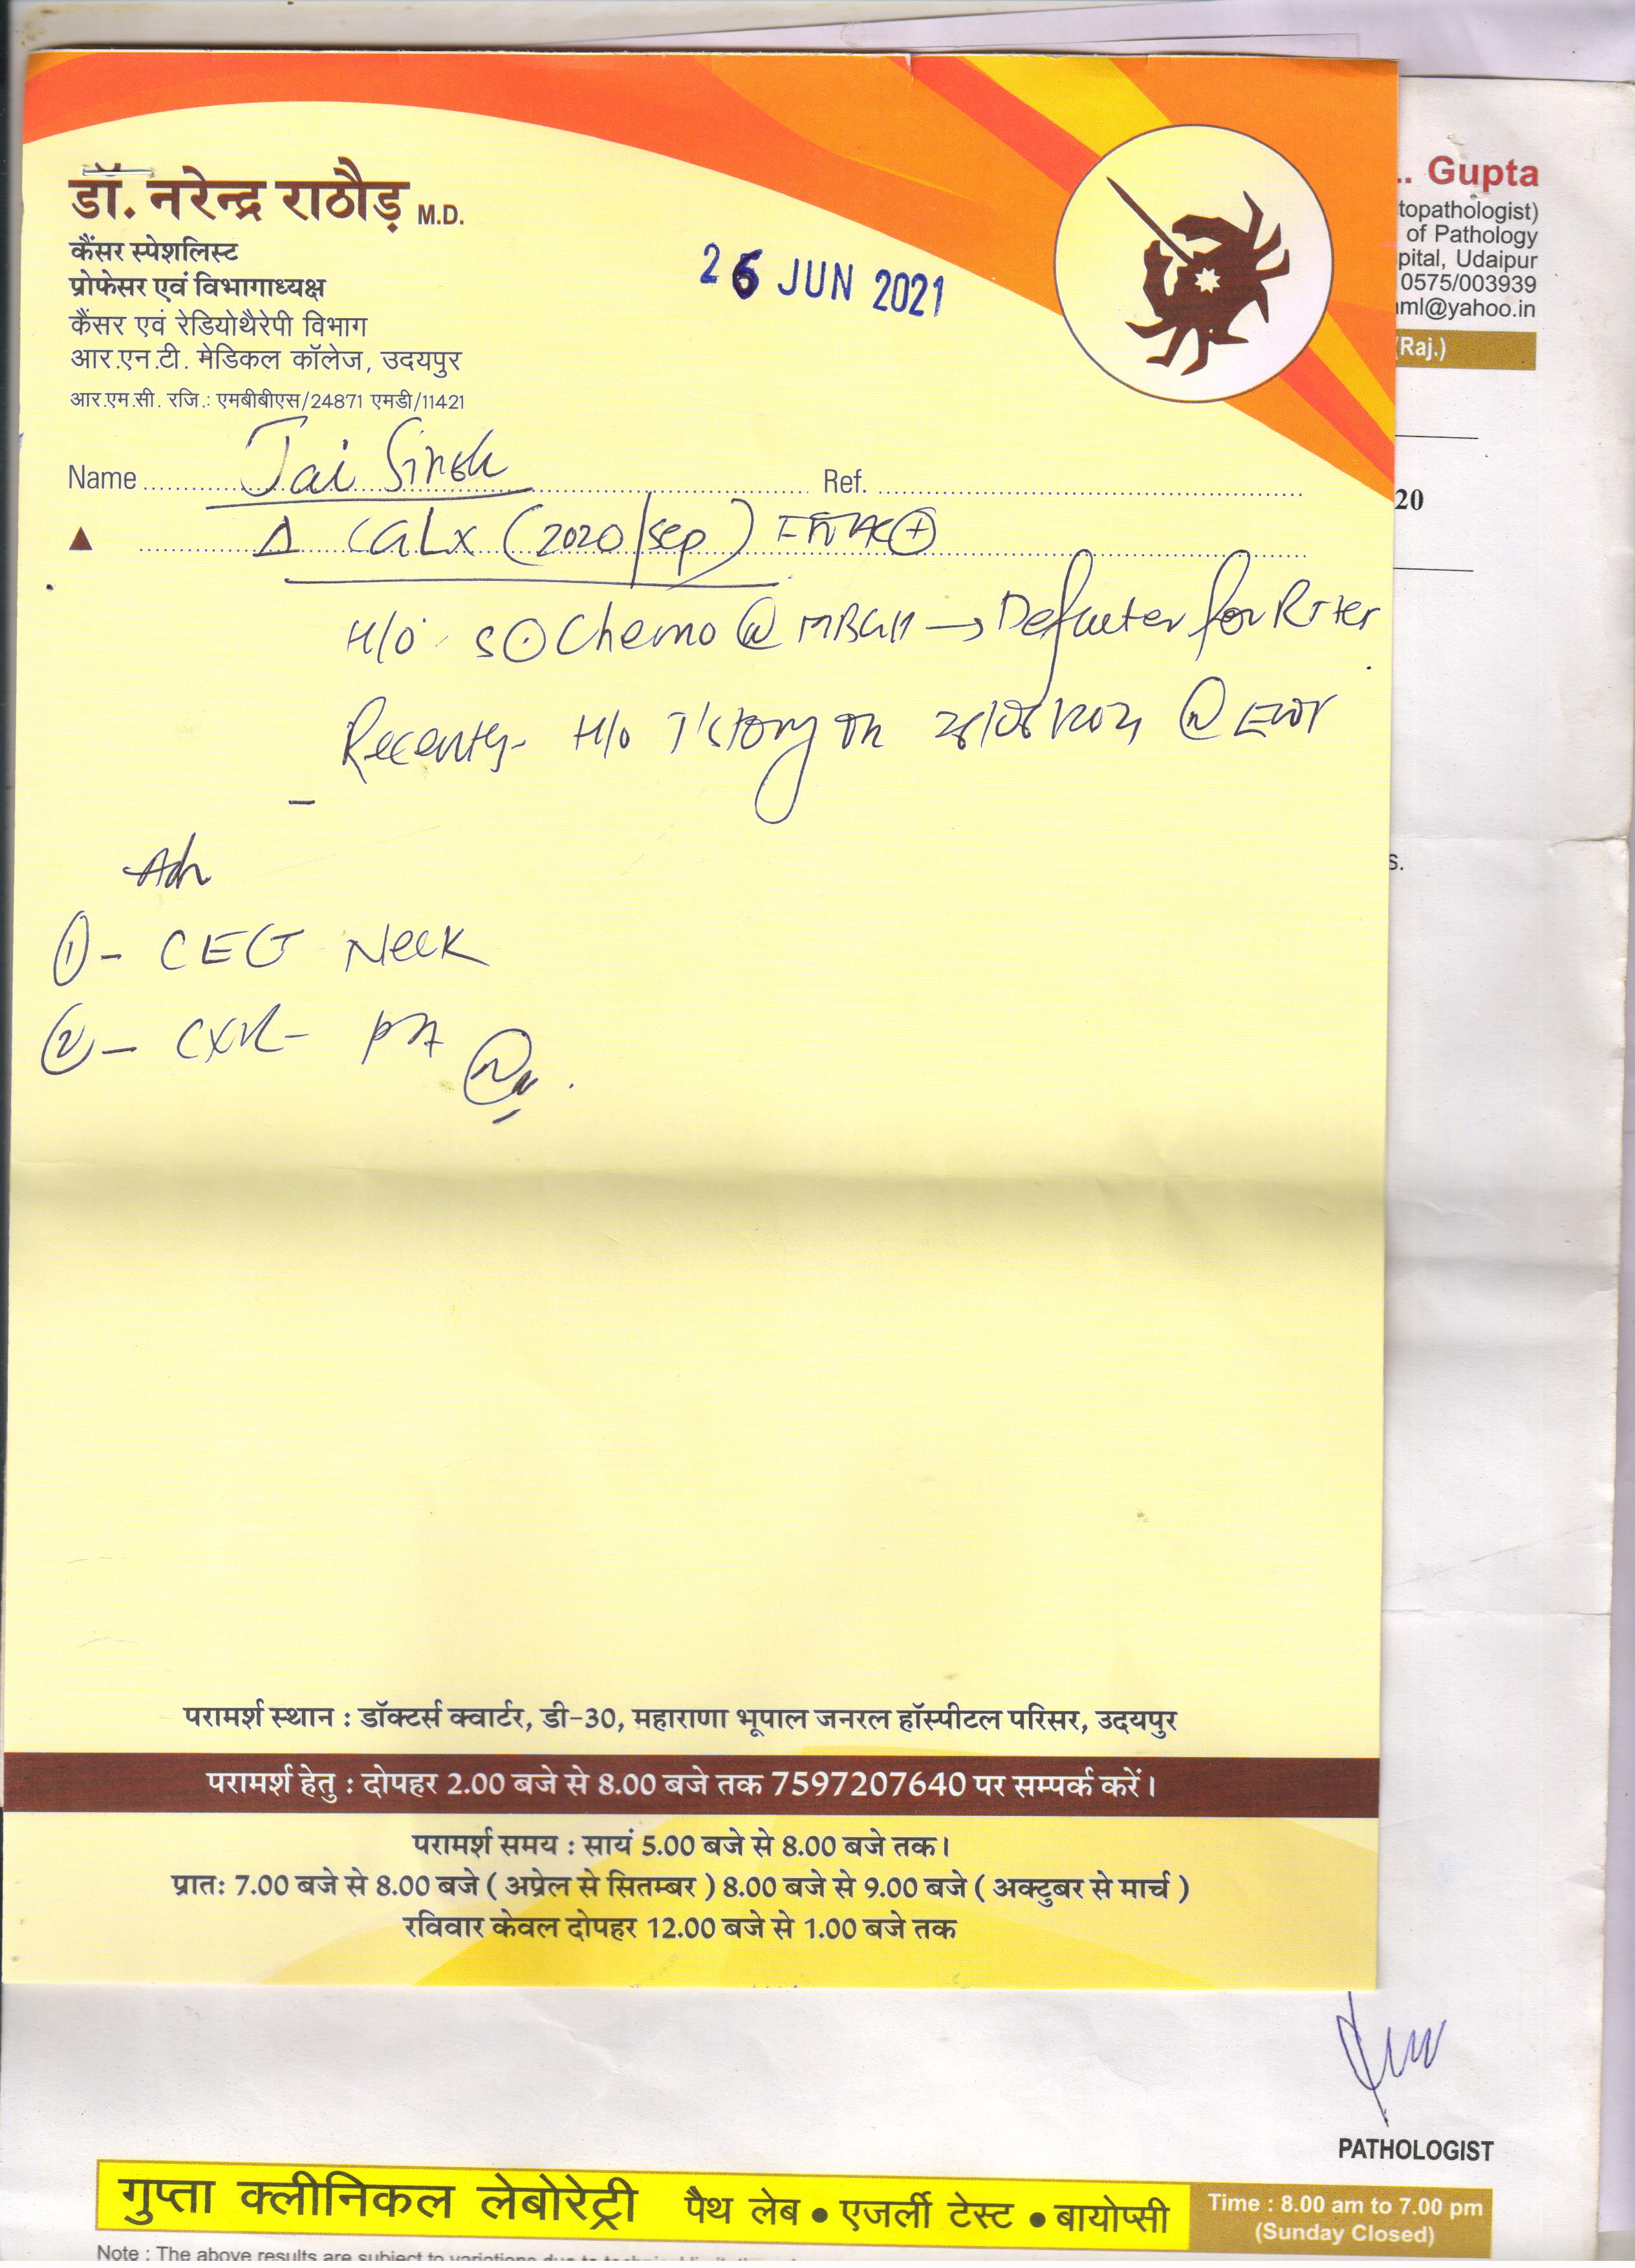 डॉ. नरेन्द्र राठौड़ M.D.
कैंसर स्पेशलिस्ट
प्रोफेसर एवं विभागाध्यक्ष
कैंसर एवं रेडियोथैरेपी विभाग
आर.एन.टी. मेडिकल कॉलेज, उदयपुर
आर.एम.सी. रजि.: एमबीबीएस/24871 एमडी/11421
26 JUN 2021
.. Gupta
topathologist)
of Pathology
pital, Udaipur
0575/003939
ml@yahoo.in
(Raj.)
Name Jai Singh Ref.
20
Δ Ca Lx (2020/sep)
H/O Chemo @ MBGH → Defaulter for
Recently - H/O T'stomy on @
s.
Adv
① - CECT Neck
② - CXR - PA
परामर्श स्थान : डॉक्टर्स क्वार्टर, डी-30, महाराणा भूपाल जनरल हॉस्पीटल परिसर, उदयपुर
परामर्श हेतु : दोपहर 2.00 बजे से 8.00 बजे तक 7597207640 पर सम्पर्क करें।
परामर्श समय : सायं 5.00 बजे से 8.00 बजे तक।
प्रातः 7.00 बजे से 8.00 बजे ( अप्रेल से सितम्बर ) 8.00 बजे से 9.00 बजे ( अक्टुबर से मार्च )
रविवार केवल दोपहर 12.00 बजे से 1.00 बजे तक
PATHOLOGIST
गुप्ता क्लीनिकल लेबोरेट्री पैथ लेब • एजर्ली टेस्ट • बायोप्सी
Time : 8.00 am to 7.00 pm
(Sunday Closed)
Note : The above results are subject to variations due to